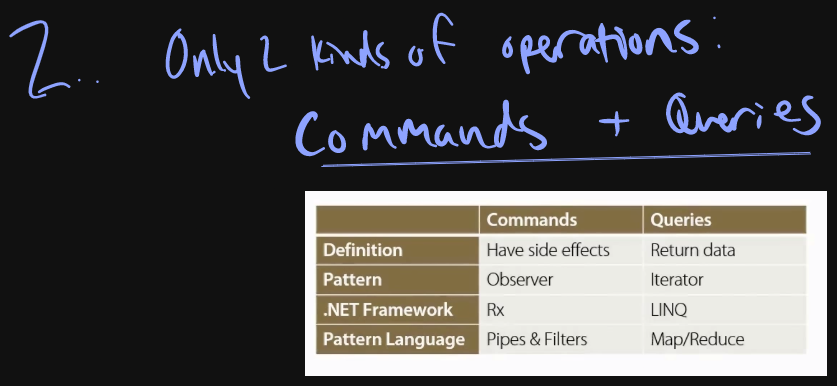 2.. Only 2 kinds of operations:
Commands + Queries
Commands Queries
Definition Have side effects Return data
Pattern Observer Iterator
.NET Framework Rx LINQ
Pattern Language Pipes & Filters Map/Reduce